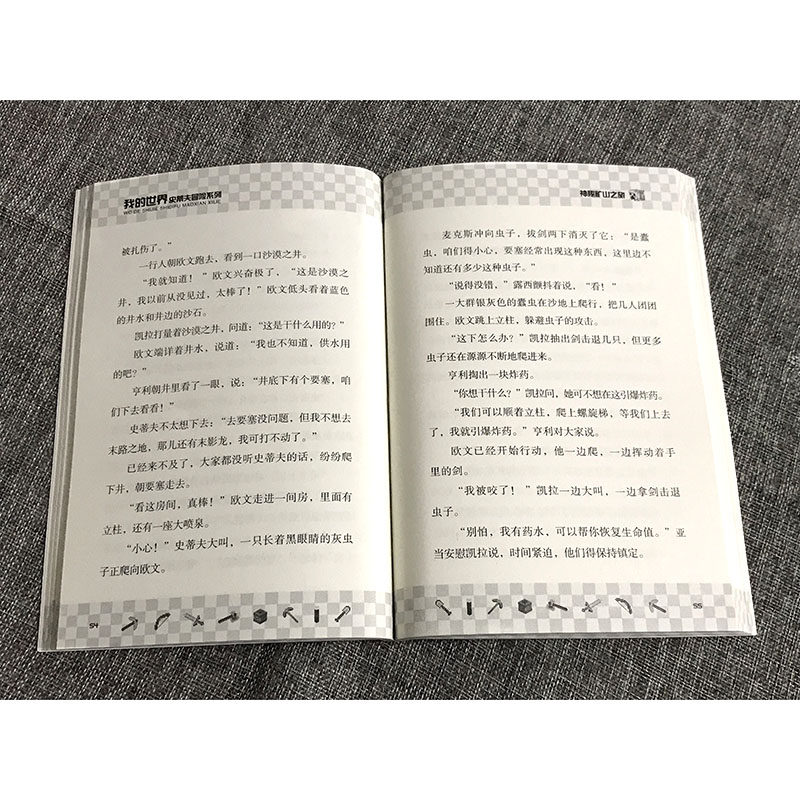 我的世界 史蒂夫冒险系列
WO DE SHIJIE SHIDIFU MAOXIAN XILIE
被扎伤了。”
一行人朝欧文跑去，看到一口沙漠之井。
“我就知道！”欧文兴奋极了，“这是沙漠之
井，我以前从没见过，太棒了！”欧文低头看着蓝色
的井水和井边的沙石。
凯拉打量着沙漠之井，问道：“这是干什么用的？”
欧文端详着井水，说道：“我也不知道，供水用
的吧？”
亨利朝井里看了一眼，说：“井底下有个要塞，咱
们下去看看！”
史蒂夫不太想下去：“去要塞没问题，但我不想去
末路之地，那儿还有末影龙，我可打不动了。”
已经来不及了，大家都没听史蒂夫的话，纷纷爬
下井，朝要塞走去。
“看这房间，真棒！”欧文走进一间房，里面有
立柱，还有一座大喷泉。
“小心！”史蒂夫大叫，一只长着黑眼睛的灰虫
子正爬向欧文。
54
神秘矿山之旅
麦克斯冲向虫子，拔剑两下消灭了它：“是蠹
虫，咱们得小心，要塞经常出现这种东西，这里边不
知道还有多少这种虫子。”
“说得没错，”露西颤抖着说，“看！”
一大群银灰色的蠹虫在沙地上爬行，把几人团团
围住。欧文跳上立柱，躲避虫子的攻击。
“这下怎么办？”凯拉抽出剑击退几只，但更多
虫子还在源源不断地爬进来。
亨利掏出一块炸药。
“你想干什么？”凯拉问，她可不想在这引爆炸药。
“我们可以顺着立柱，爬上螺旋梯，等我们上去
了，我就引爆炸药。”亨利对大家说。
欧文已经开始行动，他一边爬，一边挥动着手
里的剑。
“我被咬了！”凯拉一边大叫，一边拿剑击退
虫子。
“别怕，我有药水，可以帮你恢复生命值。”亚
当安慰凯拉说，时间紧迫，他们得保持镇定。
55